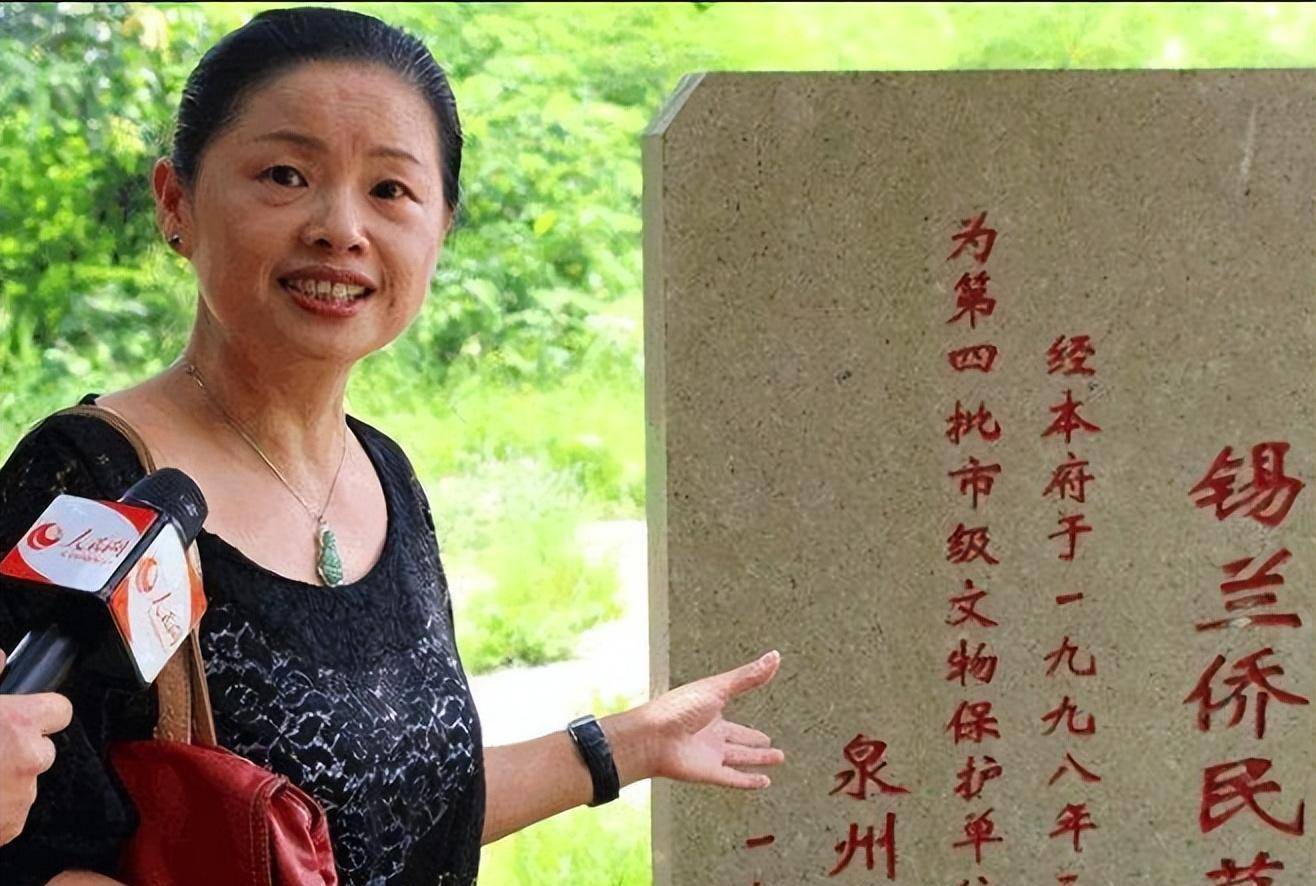 锡兰侨民
经本府于一九九八年
为第四批市级文物保护单
泉州
一
人民网
人民网